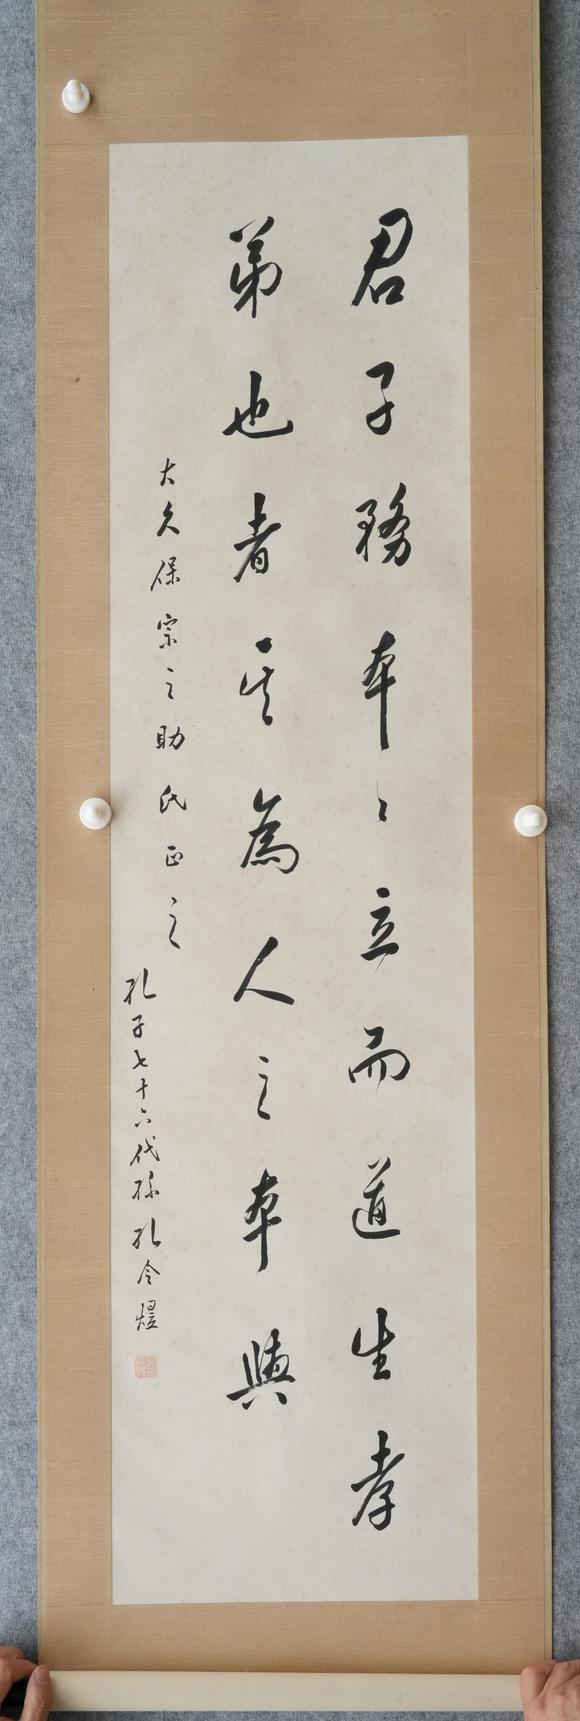 君子務本〻立而道生孝
弟也者其為人之本與
大久保宗之助氏正之
孔子七十六代孫孔令煜